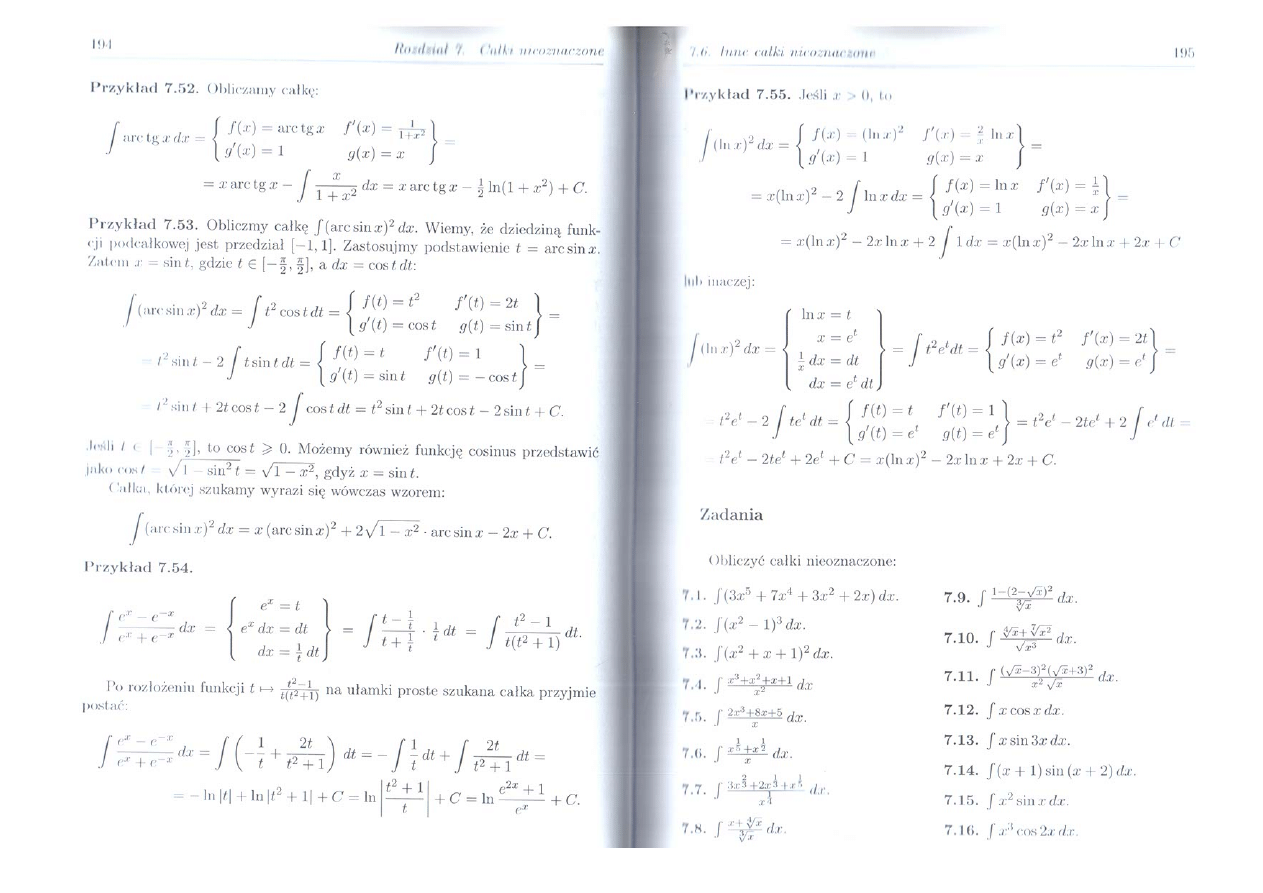 194
Rozdział 7. Całki nieoznaczone
Przykład 7.52. Obliczamy całkę:
∫ arc tg x dx = { f(x) = arc tg x f′(x) = 1/(1+x²) g′(x) = 1 g(x) = x } =
= x arc tg x − ∫ x/(1 + x²) dx = x arc tg x − ½ ln(1 + x²) + C.
Przykład 7.53. Obliczmy całkę ∫(arc sin x)² dx. Wiemy, że dziedziną funk-
cji podcałkowej jest przedział [−1, 1]. Zastosujmy podstawienie t = arc sin x.
Zatem x = sin t, gdzie t ∈ [−π/2, π/2], a dx = cos t dt:
∫ (arc sin x)² dx = ∫ t² cos t dt = { f(t) = t² f′(t) = 2t g′(t) = cos t g(t) = sin t } =
= t² sin t − 2 ∫ t sin t dt = { f(t) = t f′(t) = 1 g′(t) = sin t g(t) = − cos t } =
= t² sin t + 2t cos t − 2 ∫ cos t dt = t² sin t + 2t cos t − 2 sin t + C.
Jeśli t ∈ [−π/2, π/2], to cos t ⩾ 0. Możemy również funkcję cosinus przedstawić
jako cos t = √(1 − sin² t) = √(1 − x²), gdyż x = sin t.
Całka, której szukamy wyrazi się wówczas wzorem:
∫ (arc sin x)² dx = x (arc sin x)² + 2√(1 − x²) · arc sin x − 2x + C.
Przykład 7.54.
∫ (eˣ − e⁻ˣ)/(eˣ + e⁻ˣ) dx = { eˣ = t eˣ dx = dt dx = 1/t dt } = ∫ (t − 1/t)/(t + 1/t) · 1/t dt = ∫ (t² − 1)/(t(t² + 1)) dt.
Po rozłożeniu funkcji t ↦ (t²−1)/(t(t²+1)) na ułamki proste szukana całka przyjmie
postać:
∫ (eˣ − e⁻ˣ)/(eˣ + e⁻ˣ) dx = ∫ (−1/t + 2t/(t² + 1)) dt = − ∫ 1/t dt + ∫ 2t/(t² + 1) dt =
= − ln |t| + ln |t² + 1| + C = ln |(t² + 1)/t| + C = ln (e²ˣ + 1)/eˣ + C.
7.6. Inne całki nieoznaczone
195
Przykład 7.55. Jeśli x > 0, to
∫ (ln x)² dx = { f(x) = (ln x)² f′(x) = 2/x ln x g′(x) = 1 g(x) = x } =
= x(ln x)² − 2 ∫ ln x dx = { f(x) = ln x f′(x) = 1/x g′(x) = 1 g(x) = x } =
= x(ln x)² − 2x ln x + 2 ∫ 1 dx = x(ln x)² − 2x ln x + 2x + C
lub inaczej:
∫ (ln x)² dx = { ln x = t x = eᵗ 1/x dx = dt dx = eᵗ dt } = ∫ t²eᵗ dt = { f(x) = t² f′(x) = 2t g′(x) = eᵗ g(x) = eᵗ } =
= t²eᵗ − 2 ∫ teᵗ dt = { f(t) = t f′(t) = 1 g′(t) = eᵗ g(t) = eᵗ } = t²eᵗ − 2teᵗ + 2 ∫ eᵗ dt =
= t²eᵗ − 2teᵗ + 2eᵗ + C = x(ln x)² − 2x ln x + 2x + C.
Zadania
Obliczyć całki nieoznaczone:
7.1. ∫(3x⁵ + 7x⁴ + 3x² + 2x) dx.
7.2. ∫(x² − 1)³ dx.
7.3. ∫(x² + x + 1)² dx.
7.4. ∫ (x³+x²+x+1)/x² dx
7.5. ∫ (2x³+8x+5)/x dx.
7.6. ∫ (x^(1/5)+x^(1/2))/x dx.
7.7. ∫ (3x^(2/3)+2x^(1/3)+x^(1/5))/x^(1/4) dx.
7.8. ∫ (x+∜x)/∛x dx.
7.9. ∫ (1−(2−√x)²)/∛x dx.
7.10. ∫ (∜x+⁷√x²)/√x³ dx.
7.11. ∫ (√x−3)²(√x+3)²/(x²√x) dx.
7.12. ∫ x cos x dx.
7.13. ∫ x sin 3x dx.
7.14. ∫(x + 1) sin (x + 2) dx.
7.15. ∫ x² sin x dx.
7.16. ∫ x³ cos 2x dx.